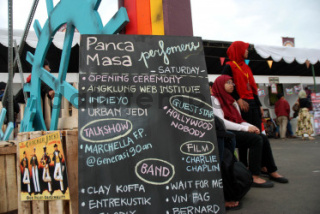 Panca Masa
perfomers
- SATURDAY -
• OPENING CEREMONY
• ANGKLUNG WEB INSTITUTE
• INDIEYO
• URBAN JEDI
GUEST STAR
• HOLLYWOOD NOBODY
TALKSHOW
• MARCHELLA FP.
@Generasi90an
FILM
• CHARLIE CHAPLIN
BAND
• CLAY KOFFA
• ENTREKUSTIK
• WAIT FOR ME
• BERNARD